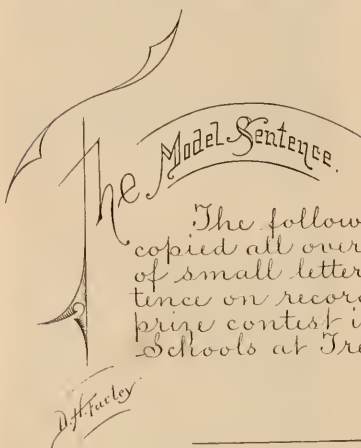 The
Model Sentence.
The follow
copied all over
of small letter
tence on recor
prize contest i
Schools at Tre
D.H. Farley.